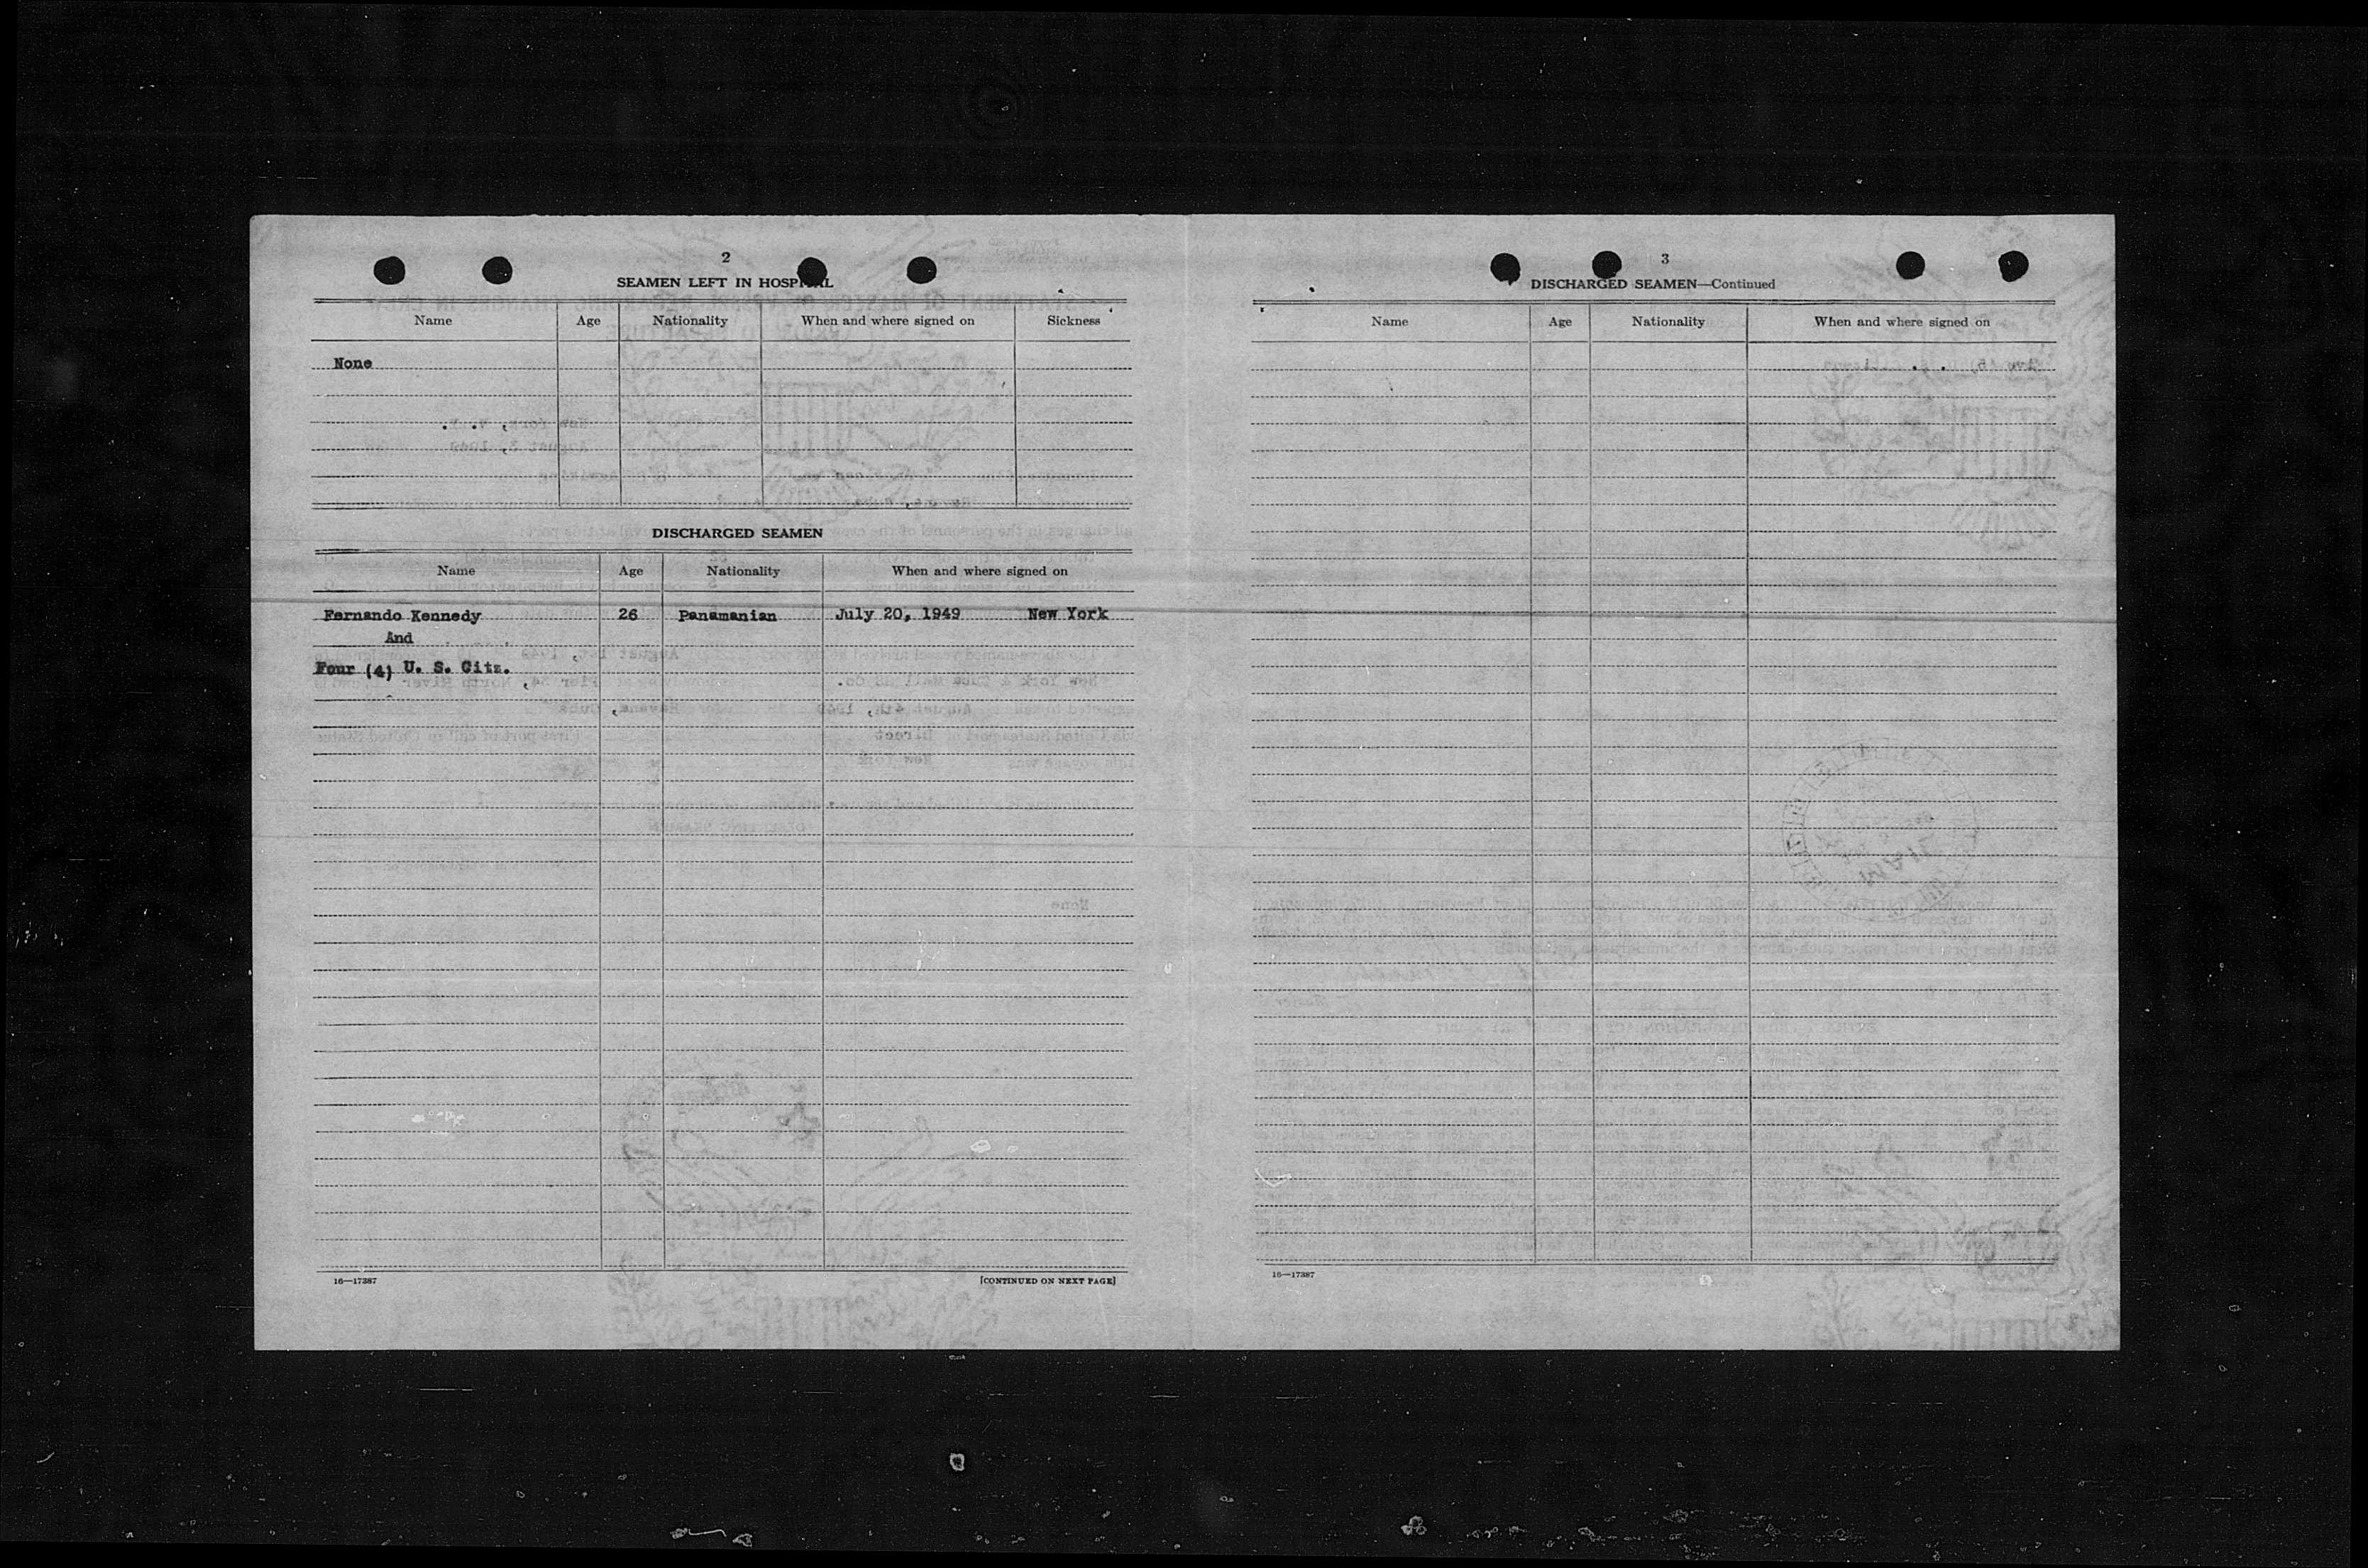 2
SEAMEN LEFT IN HOSPITAL
Name Age Nationality When and where signed on Sickness
None
DISCHARGED SEAMEN
Name Age Nationality When and where signed on
Fernando Kennedy 26 Panamanian July 20, 1949 New York
And
Four (4) U. S. Citz.
16—17387 [CONTINUED ON NEXT PAGE]
3
DISCHARGED SEAMEN—Continued
Name Age Nationality When and where signed on
16—17387